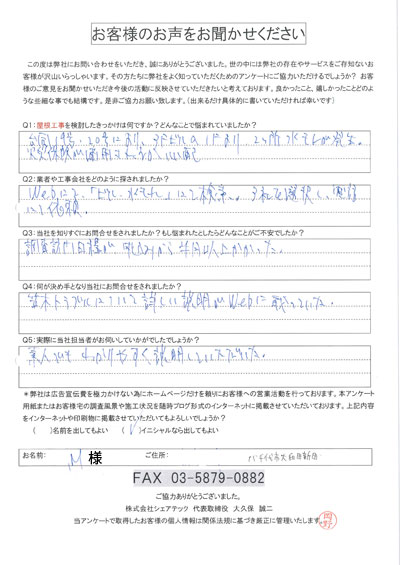 お客様のお声をお聞かせください
この度は弊社にお問い合わせをいただき、誠にありがとうございます。世の中には弊社の存在やサービスをご存知ないお
客様が沢山いらっしゃいます。その方たちに弊社をよく知っていただくためのアンケートにご協力いただけるでしょうか? お客
様のご意見をお聞かせいただき今後の活動に反映させていただきたいと考えております。良かったこと、嬉しかったことどのよ
うな些細な事でも結構です。是非ご協力お願い致します。(出来るだけ具体的に書いていただければ幸いです)
Q1:屋根工事を検討したきっかけは何ですか?どんなことで悩まれていましたか?
台風19号・20号により、3FビルのFより、2ヶ所水もれが発生。
火災保険が適用されるか心配
Q2:業者や工事会社をどのように探されましたか?
Webにて、「ビル 水もれ」にて検索。3社を選択し、
にて依頼。
Q3:当社を知りすぐにお問合せをされましたか?もし悩まれたとしたらどんなことがご不安でしたか?
調査訪問日程が、申込みから半月以上かかった。
Q4:何が決め手となり当社にお問合せをされましたか?
笠木トラブルについて詳しい説明がWebに載っていた。
Q5:実際に当社担当者がお伺いしていかがでしたでしょうか?
素人でもわかりやすく説明していただいた。
*弊社は広告宣伝費を極力かけない為にホームページだけを頼りにお客様への営業活動を行っております。本アンケート
用紙またはお客様宅の調査風景や施工状況を随時ブログ形式のインターネットに掲載させていただいております。上記内容
をインターネットや印刷物に掲載させていただいてもよろしいでしょうか?
( )名前を出してもよい ( ✓ )イニシャルなら出してもよい
お名前: M 様 ご住所: 八千代市大和田新田
FAX 03-5879-0882
ご協力ありがとうございました。
株式会社シェアテック 代表取締役 大久保 誠二
当アンケートで取得したお客様の個人情報は関係法規に基づき厳正に管理いたします。